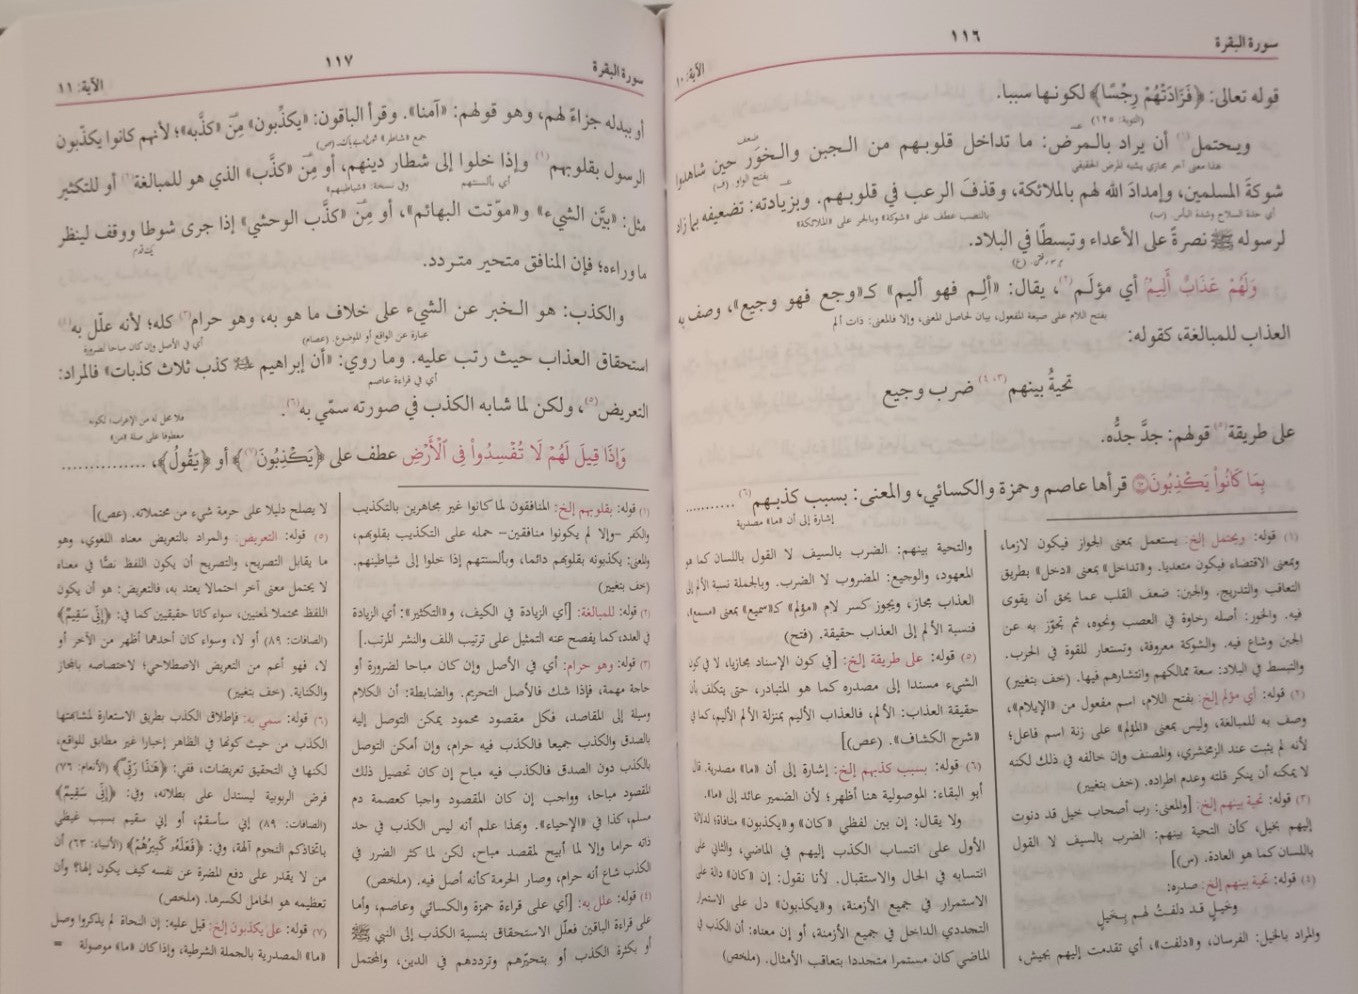 سورة البقرة
١١٦
الآية: ١٠
قوله تعالى: ﴿فَزَادَتْهُمْ رِجْسًا﴾ لكونها سببا.
(التوبة: ١٢٥)
ويحتمل(١) أن يراد بالمرض: ما تداخل قلوبهم من الجبن والخَوَر حين شاهدوا
ضعف
هذا معنى آخر مجازي يشبه المرض الحقيقي
بفتح الواو. (ف)
شوكةَ المسلمين، وإمدادَ الله لهم بالملائكة، وقذفَ الرعب في قلوبهم. وبزيادته: تضعيفه بما زاد
أي حدة السلاح وشدة البأس. (ب)
بالنصب عطف على «شوكة» وبالجر على «الملائكة»
لرسوله ﷺ نصرةً على الأعداء وتبسطًا في البلاد.
وَلَهُمْ عَذَابٌ أَلِيمٌ أي مؤلَم(٢)، يقال: «ألِم فهو أليم» كـ«وجع فهو وجيع»، وصف به
بفتح اللام على صيغة المفعول، بيان لحاصل المعنى، وإلا فالمعنى: ذات ألم
العذاب للمبالغة، كقوله:
تحيةُ بينهم(٣، ٤) ضرب وجيع
على طريقة(٥) قولهم: جدَّ جدُّه.
بِمَا كَانُوا۟ يَكْذِبُونَ ۝١٠ قرأها عاصم وحمزة والكسائي، والمعنى: بسبب كذبهم(٦)..........
إشارة إلى أن «ما» مصدرية
(١) قوله: ويحتمل إلخ: يستعمل بمعنى الجواز فيكون لازما،
وبمعنى الاقتضاء فيكون متعديا. و«تداخل» بمعنى «دخل» بطريق
التعاقب والتدريج. والجبن: ضعف القلب عما يحق أن يقوى
فيه. والخور: أصله رخاوة في العصب ونحوه، ثم تجوّز به عن
الجبن وشاع فيه. والشوكة معروفة، وتستعار للقوة في الحرب.
والتبسط في البلاد: سعة ممالكهم وانتشارهم فيها. (خف بتغيير)
(٢) قوله: أي مؤلم إلخ: بفتح اللام، اسم مفعول من «الإيلام»،
وصف به للمبالغة، وليس بمعنى «المؤلِم» على زنة اسم فاعل؛
لأنه لم يثبت عند الزمخشري، والمصنف وإن خالفه في ذلك لكنه
لا يمكنه أن ينكر قلته وعدم اطراده. (خف بتغيير)
(٣) قوله: تحية بينهم إلخ: [والمعنى: رب أصحاب خيل قد دنوت
إليهم بخيل، كأن التحية بينهم: الضرب بالسيف لا القول
باللسان كما هو العادة. (س)]
(٤) قوله: تحية بينهم إلخ: صدره:
وخيلٍ قد دلفتُ لهم بِخيلٍ
والمراد بالخيل: الفرسان، و«دلفت»، أي تقدمت إليهم بجيش،
والتحية بينهم: الضرب بالسيف لا القول باللسان كما هو
المعهود، والوجيع: المضروب لا الضرب. وبالجملة نسبة الألم إلى
العذاب مجاز، ويجوز كسر لام «مؤلم» كـ«سميع» بمعنى «مسمع»،
فنسبة الألم إلى العذاب حقيقة. (فتح)
(٥) قوله: على طريقة إلخ: [في كون الإسناد مجازيا، لا في كون
الشيء مسندا إلى مصدره كما هو المتبادر، حتى يتكلف بأن
حقيقة العذاب: الألم، فالعذاب الأليم بمنزلة الألم الأليم، كما في
«شرح الكشاف». (عص)]
(٦) قوله: بسبب كذبهم إلخ: إشارة إلى أن «ما» مصدرية. قال
أبو البقاء: الموصولية هنا أظهر؛ لأن الضمير عائد إلى «ما».
ولا يقال: إن بين لفظي «كان» و«يكذبون» منافاة؛ لدلالة
الأول على انتساب الكذب إليهم في الماضي، والثاني على
انتسابه في الحال والاستقبال. لأنا نقول: إن «كان» دالة على
الاستمرار في جميع الأزمنة، و«يكذبون» دل على الاستمرار
التجددي الداخل في جميع الأزمنة، أو إن معناه: أن الكذب في
الماضي كان مستمرا متجددا بتعاقب الأمثال. (ملخص)
سورة البقرة
١١٧
الآية: ١١
أو ببدله جزاءً لهم، وهو قولهم: «آمنا». وقرأ الباقون: «يكذِّبون» مِنْ «كذَّبه»؛ لأنهم كانوا يكذّبون
الرسول بقلوبهم(١) وإذا خلوا إلى شطار دينهم، أو مِنْ «كذَّب» الذي هو للمبالغة(٢) أو للتكثير
أي بألسنتهم
وفي نسخة: «شياطينهم»
مثل: «بيَّن الشيء» و«موّتت البهائم»، أو مِنْ «كذَّب الوحشي» إذا جرى شوطا ووقف لينظر
ما وراءه؛ فإن المنافق متحير متردد.
والكذب: هو الخبر عن الشيء على خلاف ما هو به، وهو حرام(٣) كله؛ لأنه علّل به(٤)
عبارة عن الواقع أو الموضوع. (عصام)
أي في الأصل وإن كان مباحا لضرورة
استحقاق العذاب حيث رتب عليه. وما روي: «أن إبراهيم عليه السلام كذب ثلاث كذبات» فالمراد:
أي في قراءة عاصم
التعريض(٥)، ولكن لما شابه الكذب في صورته سمّي به(٦).
فلا محل له من الإعراب؛ لكونه
معطوفا على صلة «من»
وَإِذَا قِيلَ لَهُمْ لَا تُفْسِدُوا۟ فِى ٱلْأَرْضِ عطف على ﴿يَكْذِبُونَ(٧)﴾ أو ﴿يَقُولُ﴾، ...............
(١) قوله: بقلوبهم إلخ: المنافقون لما كانوا غير مجاهرين بالتكذيب
والكفر -وإلا لم يكونوا منافقين- حمله على التكذيب بقلوبهم،
والمعنى: يكذبونه بقلوبهم دائما، وبألسنتهم إذا خلوا إلى شياطينهم.
(خف بتغيير)
(٢) قوله: للمبالغة: [أي الزيادة في الكيف، و«التكثير»: أي الزيادة
في العدد، كما يفصح عنه التمثيل على ترتيب اللف والنشر المرتب.]
(٣) قوله: وهو حرام: أي في الأصل وإن كان مباحا لضرورة أو
حاجة مهمة، فإذا شك فالأصل التحريم. والضابطة: أن الكلام
وسيلة إلى المقاصد، فكل مقصود محمود يمكن التوصل إليه
بالصدق والكذب جميعا فالكذب فيه حرام، وإن أمكن التوصل
بالكذب دون الصدق فالكذب فيه مباح إن كان تحصيل ذلك
المقصود مباحا، وواجب إن كان المقصود واجبا كعصمة دم
مسلم، كذا في «الإحياء». وبهذا علم أنه ليس الكذب في حد
ذاته حراما وإلا لما أبيح لمقصد مباح، لكن لما كثر الضرر في
الكذب شاع أنه حرام، وصار الحرمة كأنه أصل فيه. (ملخص)
(٤) قوله: علل به: [أي على قراءة حمزة والكسائي وعاصم، وأما
على قراءة الباقين فعلّل الاستحقاق بنسبة الكذب إلى النبي ﷺ
أو بكثرة الكذب أو بتحيّرهم وترددهم في الدين، والمحتمل
لا يصلح دليلا على حرمة شيء من محتملاته. (عص)]
(٥) قوله: التعريض: والمراد بالتعريض معناه اللغوي، وهو
ما يقابل التصريح، والتصريح أن يكون اللفظ نصًّا في معناه
لا يحتمل معنى آخر احتمالا يعتد به، فالتعريض: هو أن يكون
اللفظ محتملا لمعنيين، سواء كانا حقيقيين كما في: ﴿إِنِّى سَقِيمٌ﴾
(الصافات: ٨٩) أو لا، وسواء كان أحدهما أظهر من الآخر أو
لا، فهو أعم من التعريض الاصطلاحي؛ لاختصاصه بالمجاز
والكناية. (خف بتغيير)
(٦) قوله: سمي به: فإطلاق الكذب بطريق الاستعارة لمشابهتها
الكذب من حيث كونها في الظاهر إخبارا غير مطابق للواقع،
لكنها في التحقيق تعريضات، ففي: ﴿هَٰذَا رَبِّى﴾ (الأنعام: ٧٦)
فرض الربوبية ليستدل على بطلانه، وفي: ﴿إِنِّى سَقِيمٌ﴾
(الصافات: ٨٩) إني سأسقمُ، أو إني سقيم بسبب غيظي
باتخاذكم النجوم آلهة، وفي: ﴿فَعَلَهُۥ كَبِيرُهُمْ﴾ (الأنبياء: ٦٣) أن
من لا يقدر على دفع المضرة عن نفسه كيف يكون إلها؟ وأن
تعظيمه هو الحامل لكسرها. (ملخص)
(٧) قوله: على يكذبون إلخ: قيل عليه: إن النحاة لم يذكروا وصل
«ما» المصدرية بالجملة الشرطية، وإذا كان «ما» موصولة =